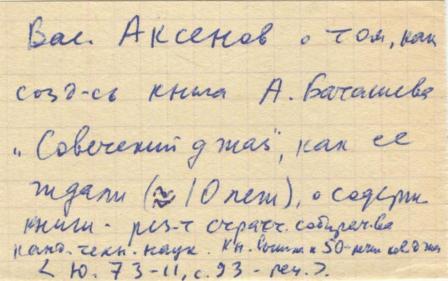 Вас. Аксенов о том, как
созд-сь книга А. Баташева
"Советский джаз", как ее
ждали (≈ 10 лет), о содерж.
книги - рез-т страстн. собират-ва
канд. техн. наук. Кн. вышла к 50-летию сов. джаза
< Ю. 73-11, с. 93 - рец. >.